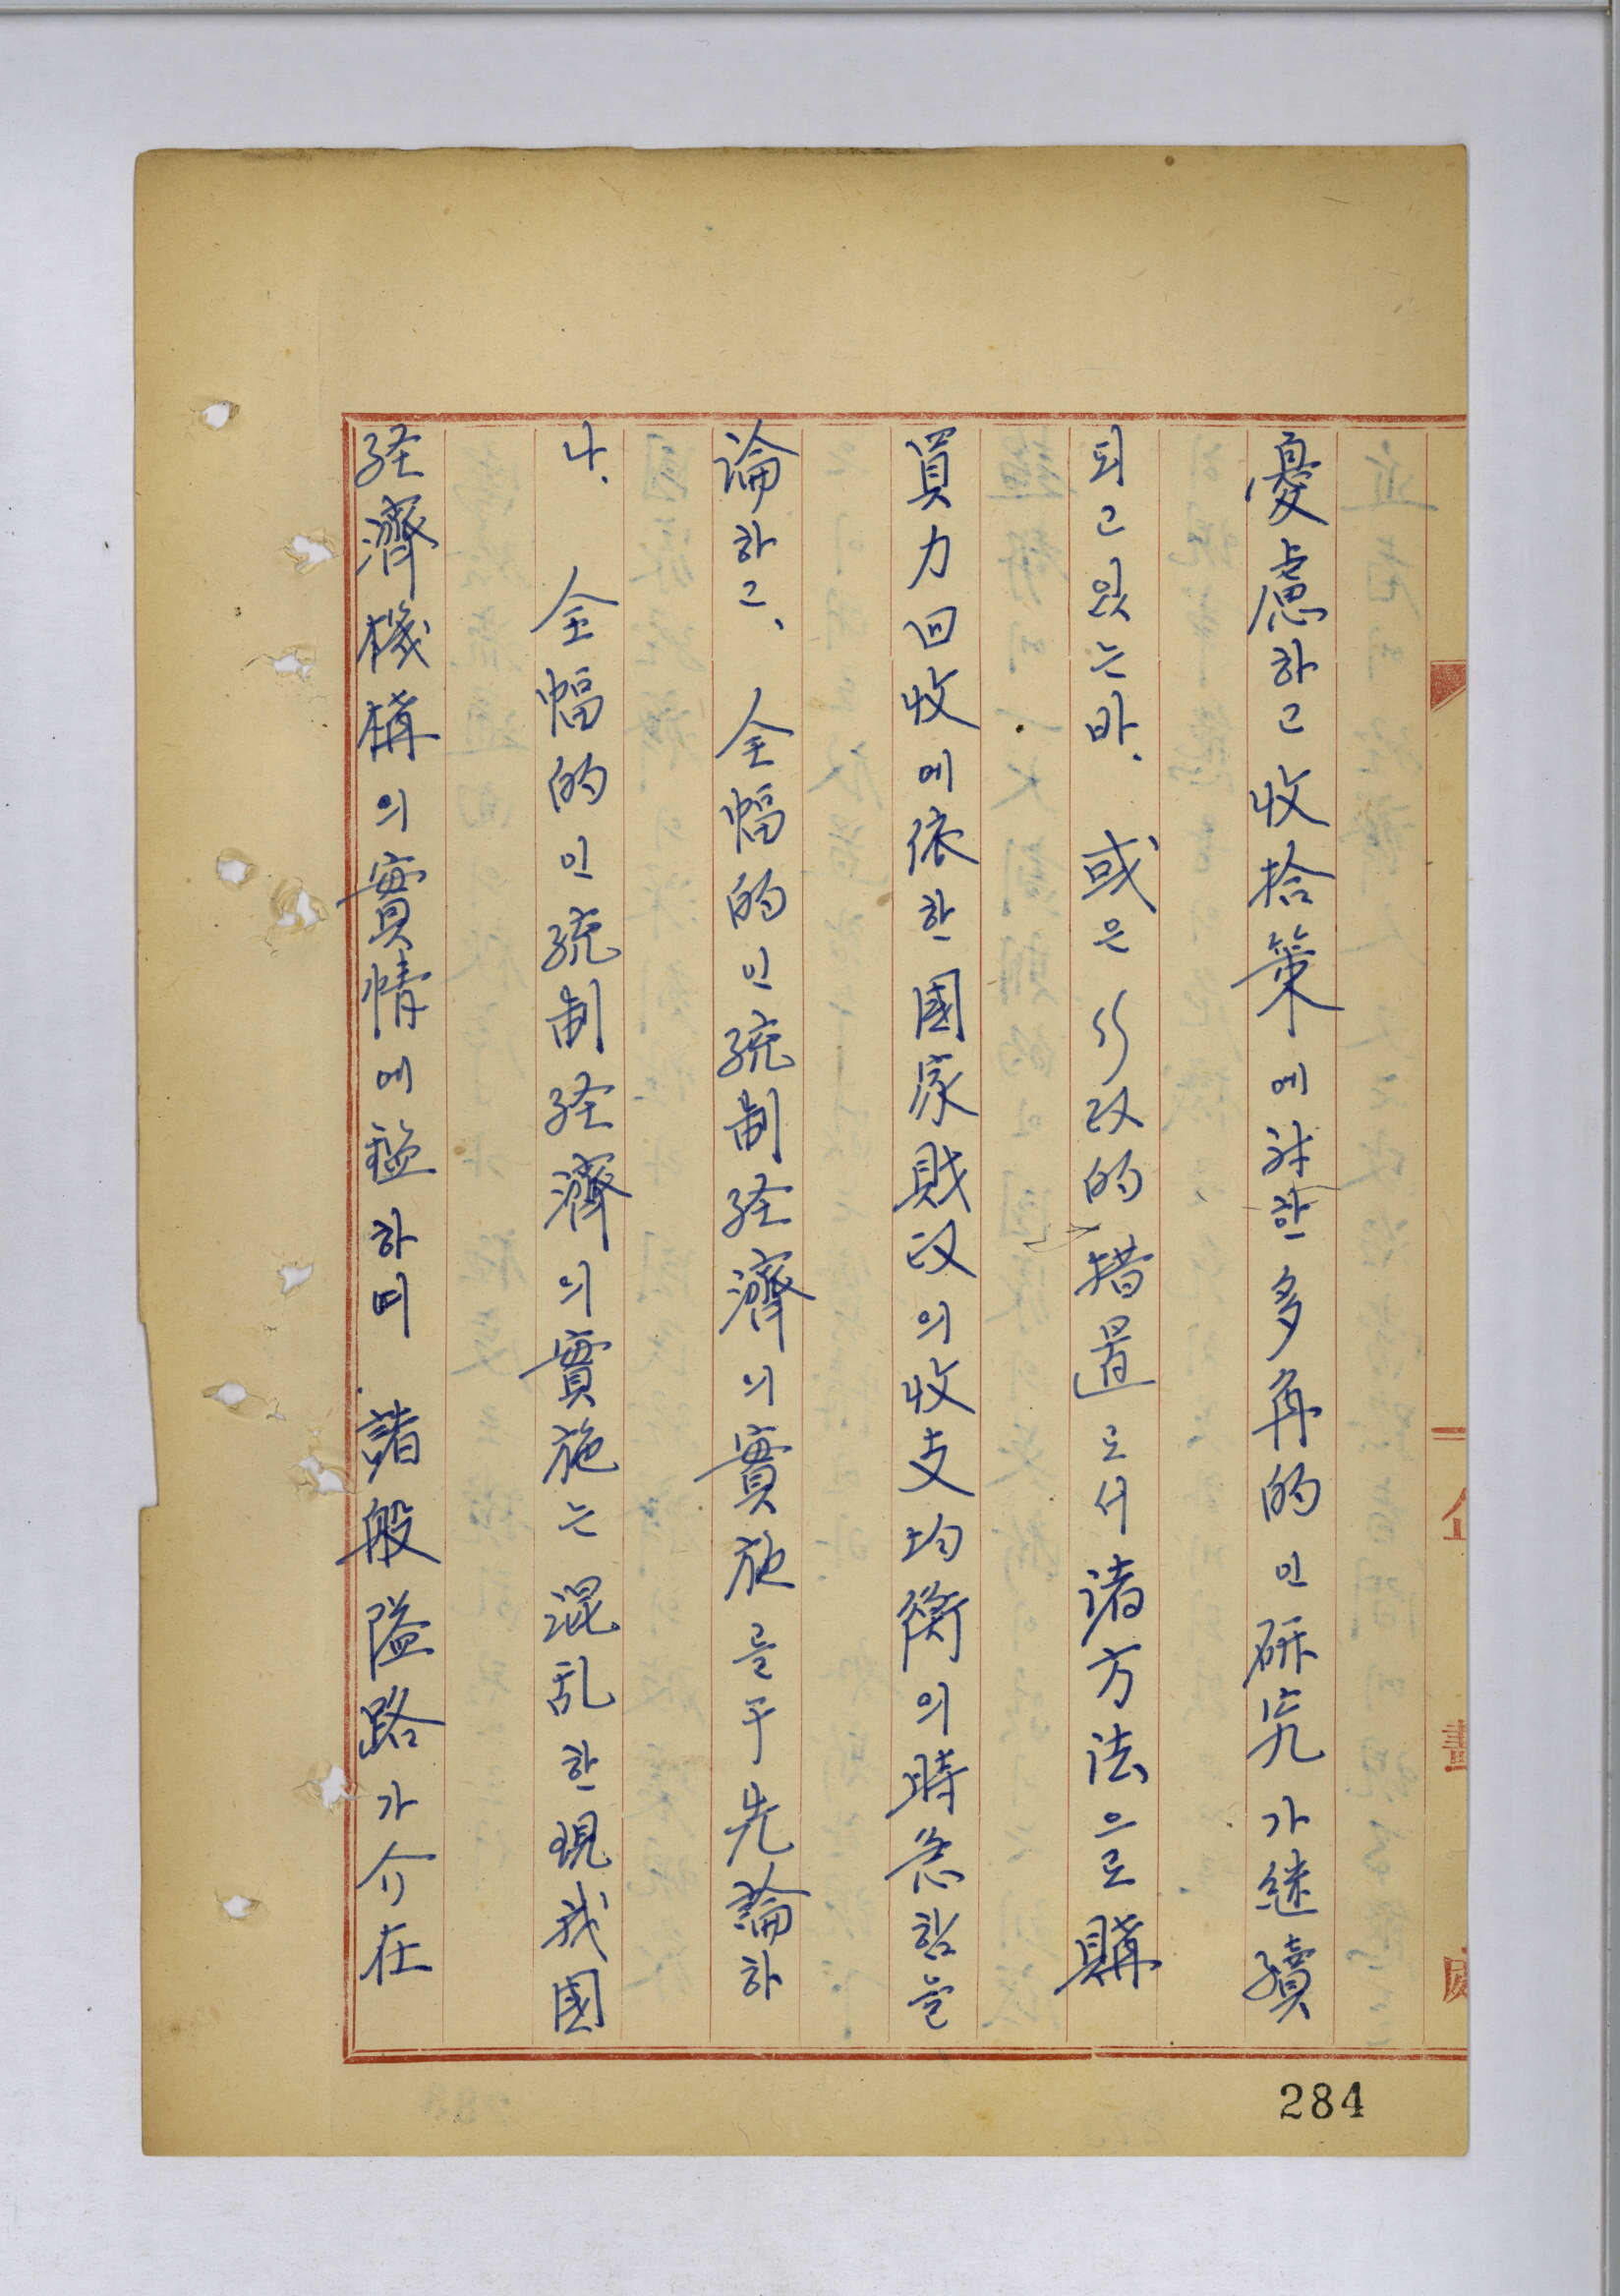 憂慮하고 收拾策에 対한 多角的인 硏究가 継續
되고 있는바. 或은 行政的 措置로서 諸方法으로 購
買力回收에 依한 國家財政의 收支均衡의 時急함을
論하고、 全幅的인 統制経濟의 實施를 于先 論하
나. 全幅的인 統制経濟의 實施는 混乱한 現我國
経濟機構의 實情에 鑑하며. 諸般隘路가 介在
企畫
284